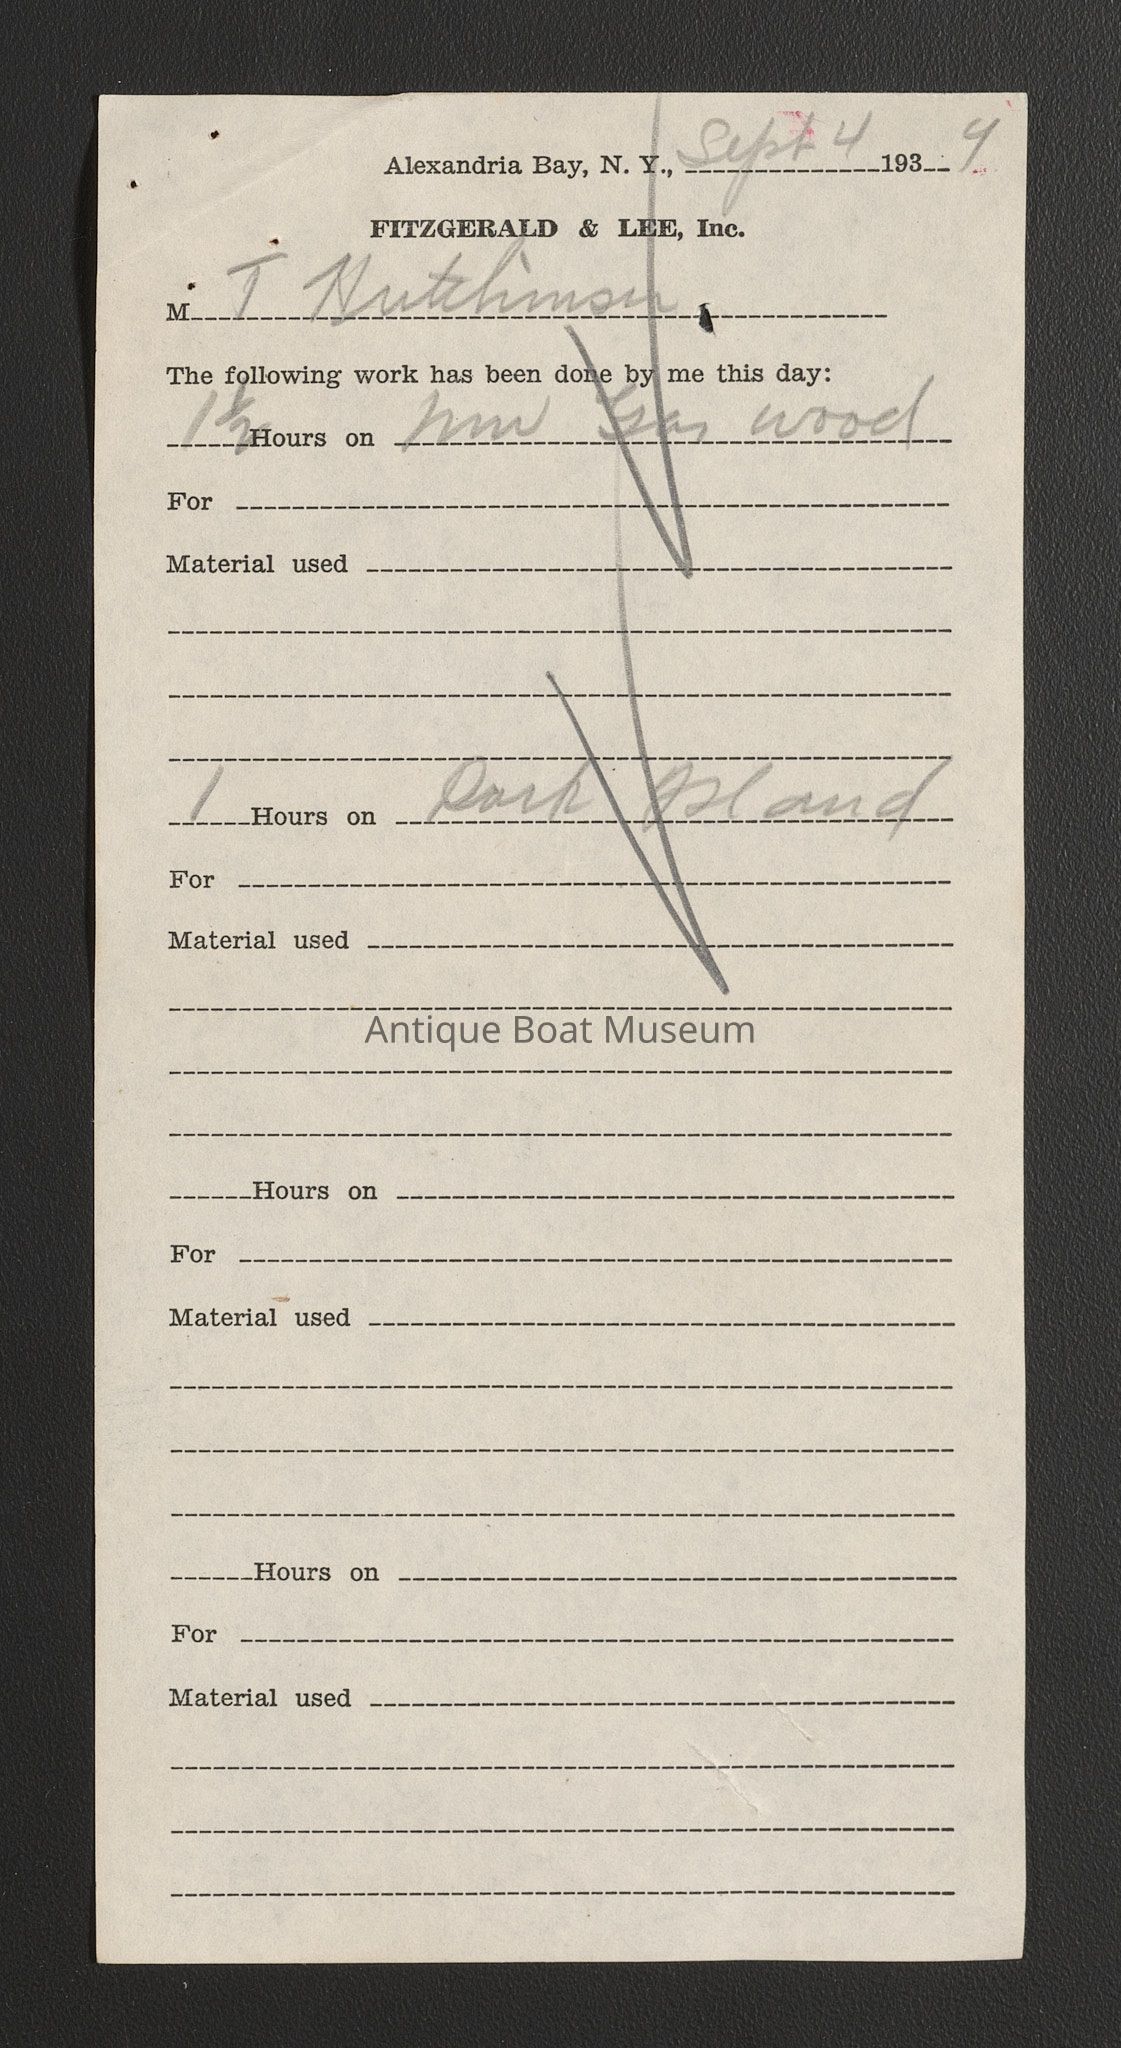 Alexandria Bay, N. Y., Sept 4 1939
FITZGERALD & LEE, Inc.
M T Hutchinson
The following work has been done by me this day:
1½ Hours on Gas wood
For
Material used
1 Hours on Dark Island
For
Material used
Antique Boat Museum
Hours on
For
Material used
Hours on
For
Material used